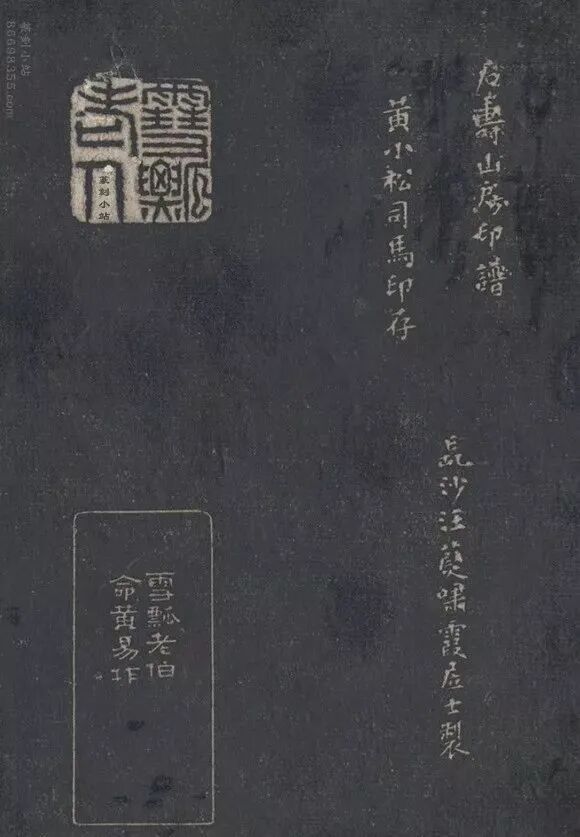 石壽山房印譜
黃小松司馬印存
長沙汪嘯霞居士製
雪瓢
老人
篆刻小站
雪瓢老伯
命黃易作
篆刻小站
86698355.com